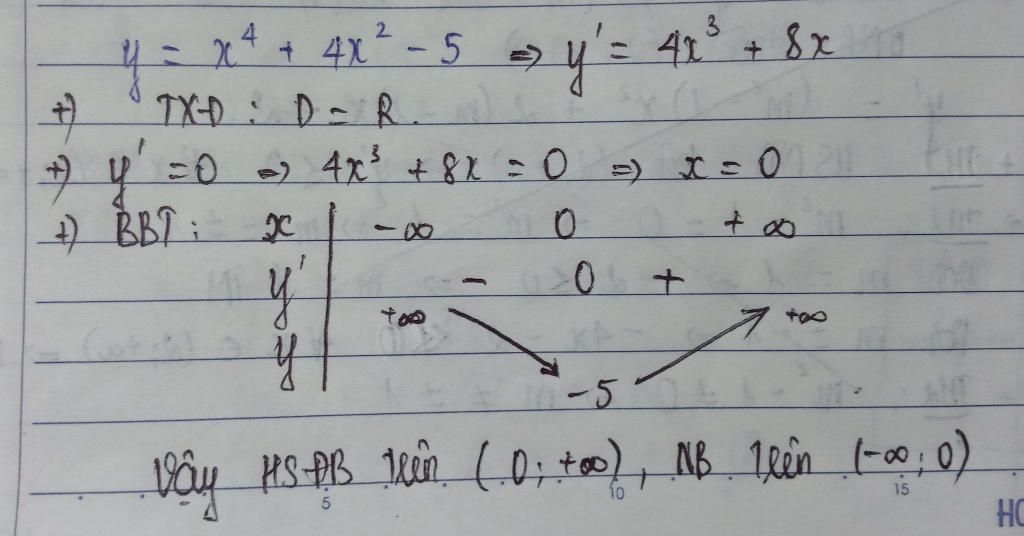 y = x⁴ + 4x² - 5 => y' = 4x³ + 8x
+) TXĐ : D = R.
+) y' = 0 => 4x³ + 8x = 0 => x = 0
+) BBT : x -∞ 0 +∞
y' - 0 +
+∞ +∞
y
-5
Vậy HS ĐB trên (0 ; +∞), NB trên (-∞ ; 0)
5 10 15
HO